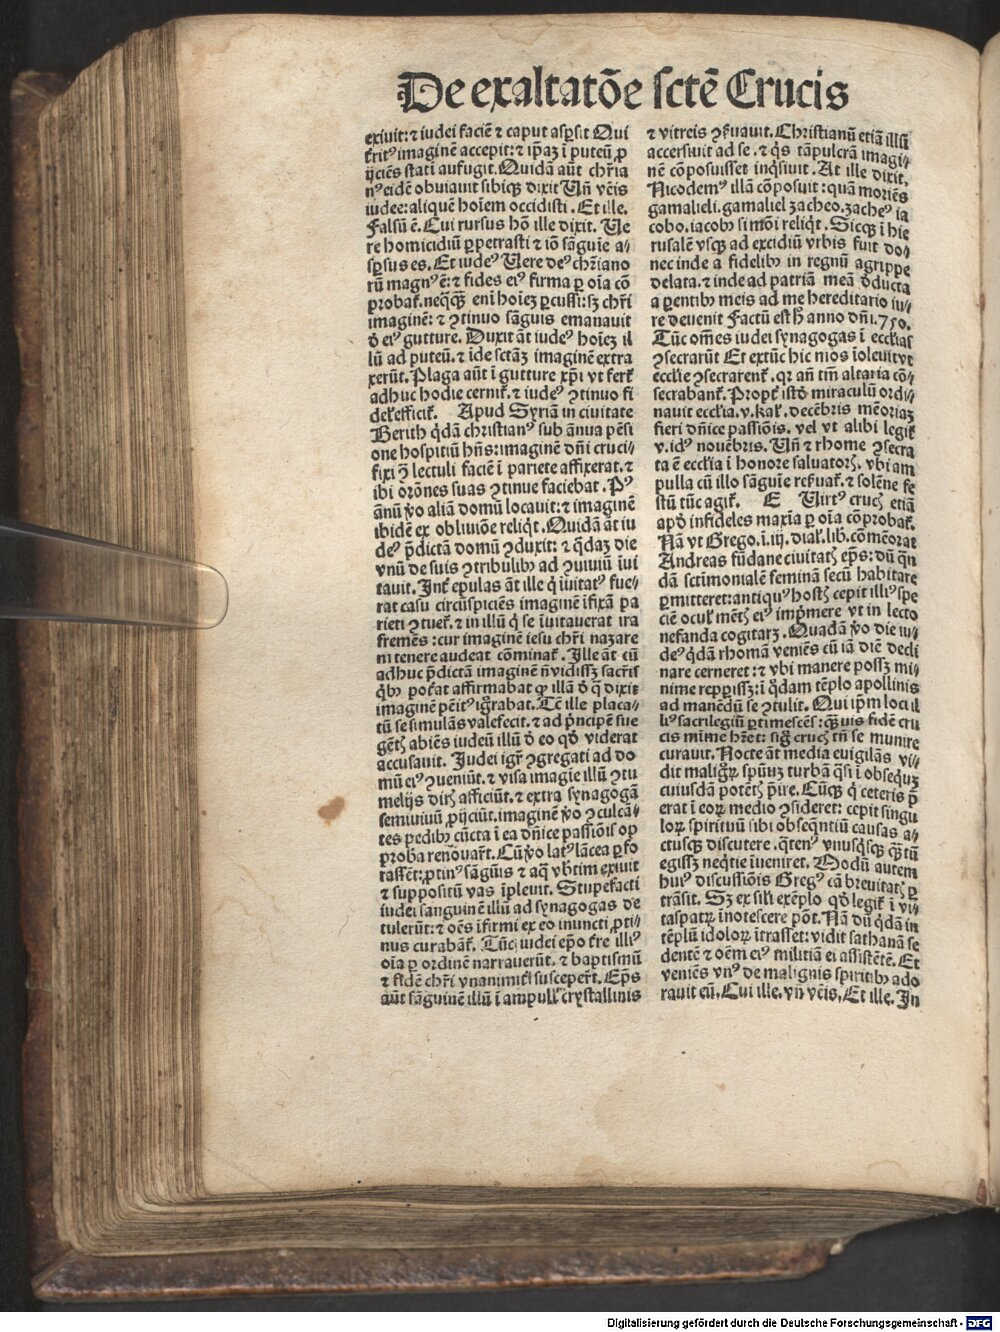 De exaltatōe sctē Crucis
exiuit: ⁊ iudei faciē ⁊ caput aspsit Qui
ꝯ imaginē accepit: ⁊ ip̄aꝫ ī puteū ꝓ
ijciēs stati aufugit. Quidā aūt chr̄ia
nꝰ eidē obuiauit sibiqꝫ dixit Un̄ vēis
iudee: aliquē hoīem occidisti. Et ille.
Falsū ē. Cui rursus hō ille dixit. Ue
re homicidiū ꝑpetrasti ⁊ iō sāguīe a/
spsus es. Et iudeꝰ Uere deꝰ chr̄iano
rū magnꝰ ē: ⁊ fides eiꝰ firma ꝑ oīa cō
probaꝉ. neq̄qꝫ enī hoīeꝫ ꝑcussi: sꝫ chr̄i
imaginē: ⁊ ꝯtinuo sāguis emanauit
ꝺ̄ eiꝰ gutture. Duxit āt iudeꝰ hoīeꝫ il
lū ad puteū. ⁊ īde sctāꝫ imaginē extra
xerūt. Plaga aūt ī gutture xp̄i vt ferꝉ
adhuc hodie cerniꝉ. ⁊ iudeꝰ ꝯtinuo fi
del̄ efficiꝉ. Apud Syriā in ciuitate
Berith q̇dā christianꝰ sub ānua pēsi
one hospitiū hn̄s: imaginē dn̄i cruci/
fixi ꝯ̄ lectuli faciē ī pariete affixerat. ⁊
ibi orōnes suas ꝯtinue faciebat. Pꝰ
ānū v̇o aliā domū locauit: ⁊ imaginē
ibidē ex obliuiōe reliq̇t. Quidā āt iu
deꝰ p̄dictā domū ꝯduxit: ⁊ q̇daꝫ die
vnū de suis ꝯtribulibꝫ ad ꝯuiuiū īui
tauit. Int̄ epulas āt ille q̇ īuitatꝰ fue/
rat casu circūspiciēs imaginē īfixā pa
rieti ꝯtueꝉ. ⁊ in illū q̇ se īuitauerat ira
fremēs: cur imaginē iesu chr̄i nazare
ni tenere audeat cōminaꝉ. Ille āt cū
adhuc p̄dictā imaginē n̄ vidissꝫ sacr̄is
q̇bꝫ poterat affirmabat ꝙ illā ꝺ̄ q̄ dixit
imaginē pēitꝰ ig̊rabat. Tc̄ ille placa/
tū se simulās valefecit. ⁊ ad p̄ncipē sue
gētꝭ abiēs iudeū illū ꝺ̄ eo qḋ viderat
accusauit. Judei igr̄ ꝯgregati ad do
mū eiꝰ ꝯueniūt. ⁊ visa imagīe illū ꝯtu
melijs dirꝭ afficiūt. ⁊ extra synagogā
semiuiuū ꝓijciūt. imaginē v̇o ꝯculca/
tes pedibꝫ cūcta ī ea dn̄ice passiōis op
proba renōuart̄. Cū v̇o latꝰ lācea ꝑfo
rassēt: ꝓtinꝰ sāguis ⁊ aq̄ vbtim exiuit
⁊ suppositū vas īpleuit. Stupefacti
iudei sanguinē illū ad synagogas de
tulerūt: ⁊ oēs īfirmi ex eo inuncti ꝓti/
nus curabāꝉ. Tūc iudei ep̄o t̄re illiꝰ
oīa ꝑ ordinē narrauerūt. ⁊ baptismū
⁊ fidē chr̄i vnanimiꝉ susceperꝉ. Ep̄s
aūt sāguinē illū ī ampull̄ crystallinis
⁊ vitreis ꝯẜuauit. Christianū etiā illū
accersiuit ad se. ⁊ q̇s tā pulcrā imagi/
nē cōposuisset inq̇siuit. At ille dixit.
Nicodemꝰ illā cōposuit: quā moriēs
gamalieli. gamaliel zacheo. zacheꝰ ia
cobo. iacobꝫ simōi reliq̇t. Sicqꝫ ī hie
rusalē vsqꝫ ad excidiū vrbis fuit do/
nec inde a fidelibꝫ in regnū agrippe
delata. ⁊ inde ad patriā meā ꝺ̄ducta
a parentibꝫ meis ad me hereditario iu/
re deuenit Factū est h̄ anno dn̄i. 750.
Tūc om̄es iudei synagogas ī eccl̄ias
ꝯsecrarūt Et extūc hic mos īoleuit vt
eccl̄ie ꝯsecrarenꝉ. qr an̄ tm̄ altaria cō/
secrabanꝉ. Propꝉ istḋ miraculū ordi/
nauit eccl̄ia. v. kal. decēbris mēoriaꝫ
fieri dn̄ice passiōis. vel vt alibi legiꝉ
v. idꝰ nouēbris. Un̄ ⁊ rhome ꝯsecra
ta ē eccl̄ia ī honore saluatorꝭ. vbi am
pulla cū illo sāguīe reẜuaꝉ. ⁊ solēne fe
stū tūc agiꝉ. E Uirtꝰ crucꝭ etiā
apḋ infideles maxīa ꝑ oīa cōprobaꝉ.
Nā vt Grego. ī. iij. dial. lib. cōmēorat
Andreas fūdane ciuitatꝭ ep̄s: dū qn̄
dā sctīmonialē feminā secū habitare
ꝑmitteret: antiquꝰ hostꝭ cepit illiꝰ spe
ciē ocul̄ mētꝭ eiꝰ imp̄mere vt in lecto
nefanda cogitarꝫ. Quadā v̇o die iu/
deꝰ q̇dā rhomā veniēs cū iā diē decli
nare cerneret: ⁊ vbi manere possꝫ mi/
nime repperissꝫ: ī q̇dam tēplo apollinis
ad manēdū se ꝯtulit. Qui ip̄m loci il
liꝰ sacrilegiū ꝑtimescēs: q̄ꝫuis fidē cru
cis mīme hr̄et: sig̊ crucꝭ tn̄ se munire
curauit. Nocte āt media euigilās vi/
dit malig̊ꝝ spūuꝫ turbā q̇si ī obsequꝫ
cuiusdā potētꝭ p̄ire. Cūqꝫ q̇ ceteris p̄
erat ī eoꝝ medio ꝯsideret: cepit singu
loꝝ spirituū sibi obseq̄ntiū causas a/
ctusqꝫ discutere. q̇tenꝰ vnusq̇sqꝫ q̄ꝫtū
egissꝫ neq̇tie īueniret. Modū autem
huiꝰ discussiōis Gregꝰ cā breuitatꝭ ꝑ
trāsit. Sꝫ ex sil̄i exēplo qḋ legiꝉ ī vi/
taspatꝝ īnotescere pōt. Nā dū q̇dā in
tēplū idoloꝝ ītrasset: vidit sathanā se
dentē ⁊ oēm eiꝰ militiā ei assistētē. Et
veniēs vnꝰ de malignis spiritibꝫ ado
rauit eū. Cui ille. vn̄ vēis. Et ille. In
Digitalisierung gefördert durch die Deutsche Forschungsgemeinschaft - DFG